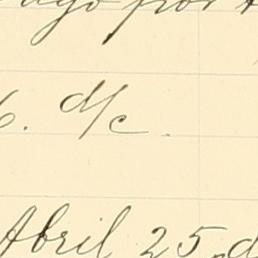 por
6. d/c.
Abril 25, d